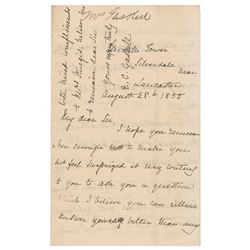 Mrs Gaskell
with kind compliments
to Mrs Sturgis, believe me
to remain dear Sir
Yours very truly
E. C. Gaskell
Tower
Silverdale
near
Lancaster
August 28th 1855
My dear Sir,
I hope you remember
me enough to make you
not feel surprized at my writing
to you to ask you a question
which I believe you can
answer better than any